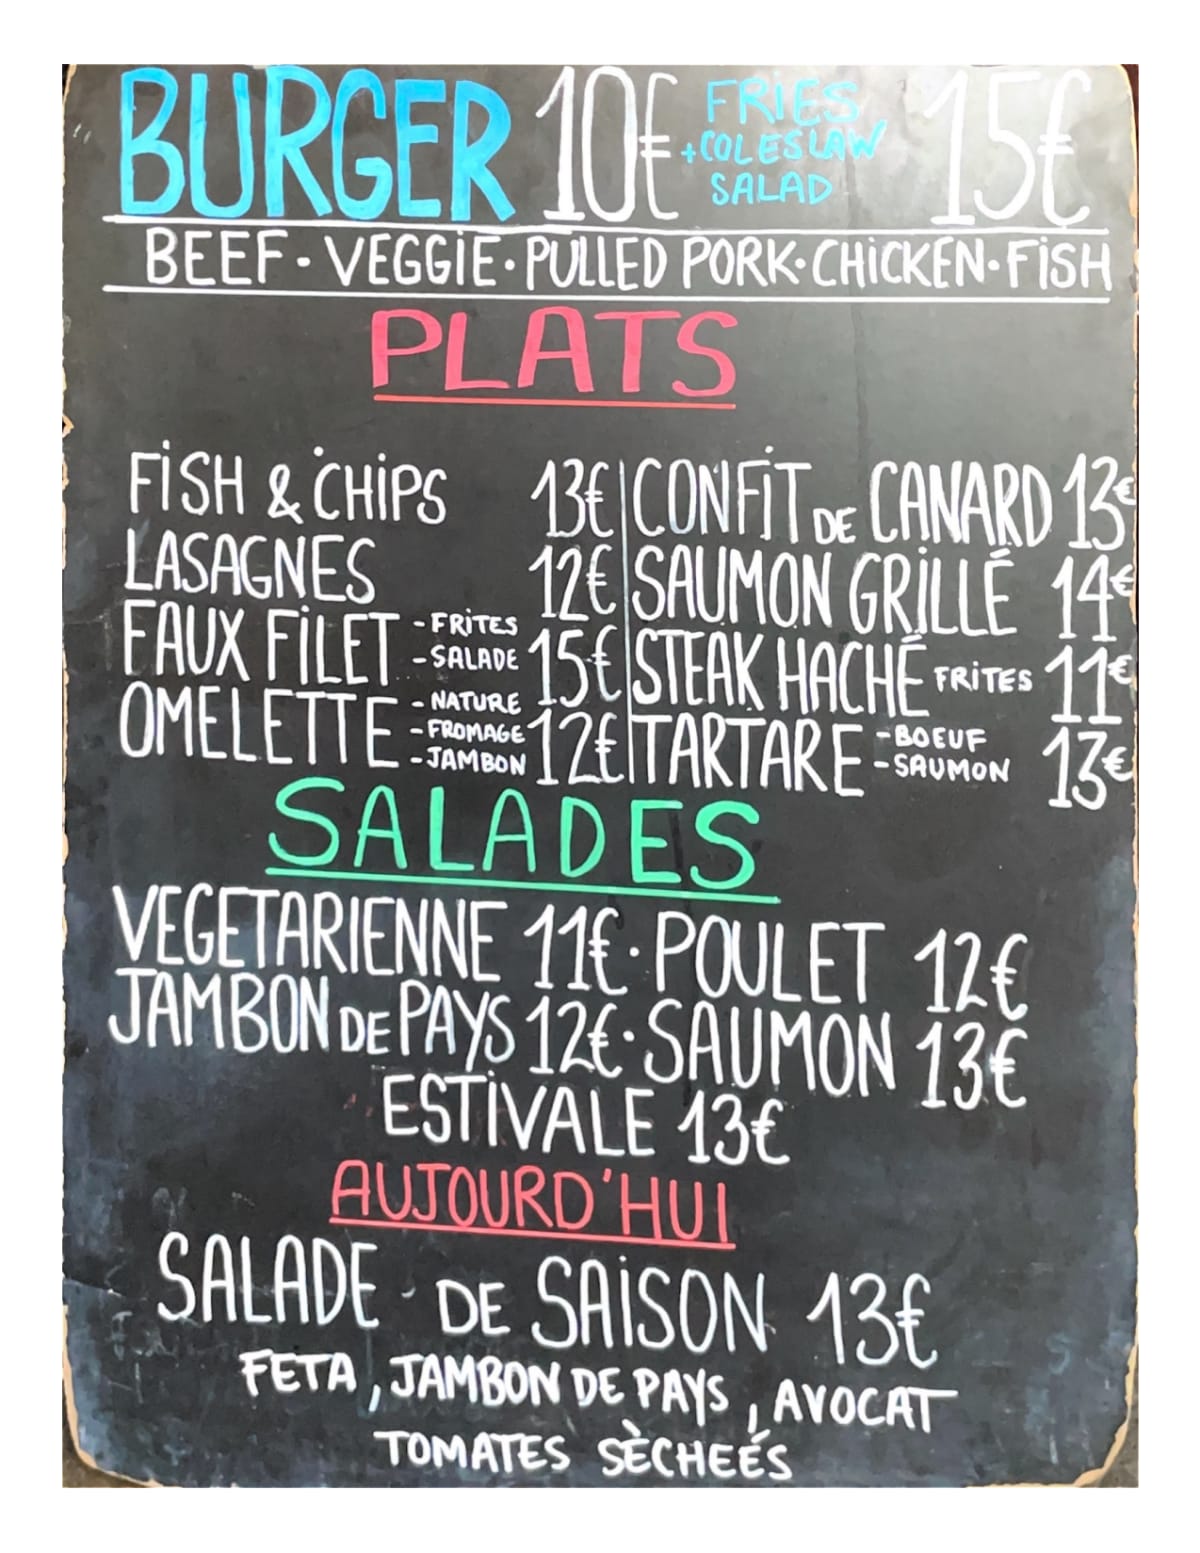 BURGER 10€ FRIES +COLESLAW SALAD 15€
BEEF · VEGGIE · PULLED PORK · CHICKEN · FISH
PLATS
FISH & CHIPS 13€
LASAGNES 12€
FAUX FILET - FRITES - SALADE 15€
OMELETTE - NATURE - FROMAGE - JAMBON 12€
CONFIT DE CANARD 13€
SAUMON GRILLÉ 14€
STEAK HACHÉ FRITES 11€
TARTARE - BOEUF - SAUMON 13€
SALADES
VEGETARIENNE 11€ · POULET 12€
JAMBON DE PAYS 12€ · SAUMON 13€
ESTIVALE 13€
AUJOURD'HUI
SALADE DE SAISON 13€
FETA, JAMBON DE PAYS, AVOCAT
TOMATES SÈCHEÉS